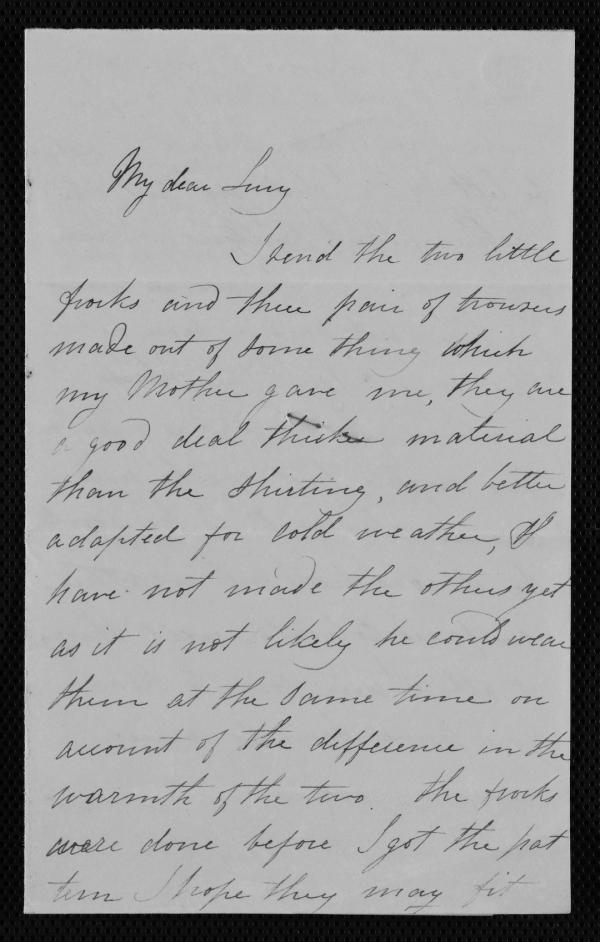 My dear Lucy
I send the two little
frocks and three pair of trousers
made out of some thing which
my Mother gave me, they are
a good deal thicker material
than the shirting, and better
adapted for cold weather, I
have not made the others yet
as it is not likely he could wear
them at the same time on
account of the difference in the
warmth of the two. the frocks
were done before I got the pat
tern I hope they may fit